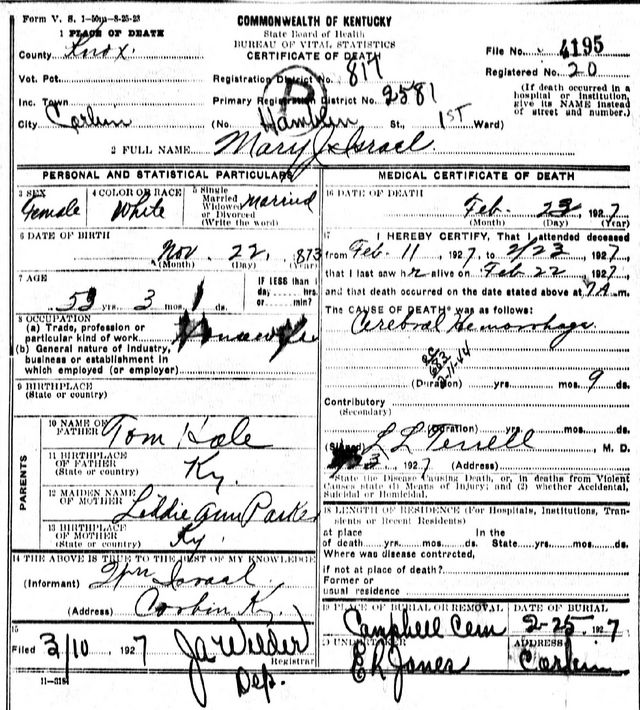 Form V. S. 1-50m-8-25-23
COMMONWEALTH OF KENTUCKY
State Board of Health
BUREAU OF VITAL STATISTICS
CERTIFICATE OF DEATH
1 PLACE OF DEATH
County Knox.
File No. 4195
Vot. Pct.
Registration District No. 817
Registered No. 20
Inc. Town
Primary Registration District No. 2581
(If death occurred in a hospital or institution, give its NAME instead of street and number.)
R
City Corbin (No. Hamblin St., 1ST Ward)
2 FULL NAME Mary J. Israel.
PERSONAL AND STATISTICAL PARTICULARS
3 SEX
Female
4 COLOR OR RACE
White
5 Single
Married
Widowed
or Divorced
(Write the word)
Married
6 DATE OF BIRTH
Nov. 22, 1873
(Month) (Day) (Year)
7 AGE
53 yrs. 3 mos. 1 ds.
IF LESS than 1
day hrs.
or min.?
8 OCCUPATION
(a) Trade, profession or
particular kind of work
(b) General nature of Industry,
business or establishment in
which employed (or employer)
9 BIRTHPLACE
(State or country)
PARENTS
10 NAME OF
FATHER Tom Hale
11 BIRTHPLACE
OF FATHER
(State or country) Ky.
12 MAIDEN NAME
OF MOTHER Liddie Ann Parker
13 BIRTHPLACE
OF MOTHER
(State or country) Ky.
14 THE ABOVE IS TRUE TO THE BEST OF MY KNOWLEDGE
(Informant) Wm Israel
(Address) Corbin Ky.
15
Filed 3/10 1927 Ja Wilder
Registrar
Dep.
11-3184
MEDICAL CERTIFICATE OF DEATH
16 DATE OF DEATH
Feb. 23, 1927
(Month) (Day) (Year)
17 I HEREBY CERTIFY, That I attended deceased
from Feb. 11 1927, to 2/23 1927
that I last saw her alive on Feb 22 1927,
and that death occurred on the date stated above at 7 A. m.
The CAUSE OF DEATH* was as follows:
Cerebral Hemorrhage
(Duration) yrs. mos. 9 ds.
Contributory
(Secondary)
(Duration) yrs. mos. ds.
(Signed) L L Terrell, M. D.
1927 (Address)
State the Disease Causing Death, or, in deaths from Violent
Causes state (1) Means of Injury; and (2) whether Accidental,
Suicidal or Homicidal.
18 LENGTH OF RESIDENCE (For Hospitals, Institutions, Transients or Recent Residents)
at place In the
of death yrs. mos. ds. State yrs. mos. ds.
Where was disease contrected,
if not at place of death?
Former or
usual residence
19 PLACE OF BURIAL OR REMOVAL
Campbell Cem
DATE OF BURIAL
2-25-1927
UNDERTAKER
E R Jones
ADDRESS
Corbin